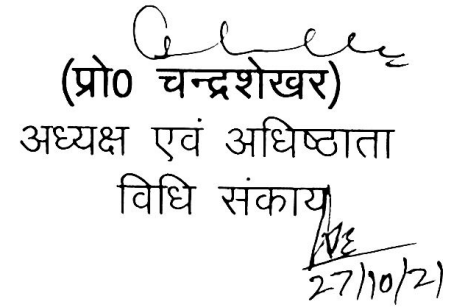 (प्रो0 चन्द्रशेखर)
अध्यक्ष एवं अधिष्ठाता
विधि संकाय
27/10/21